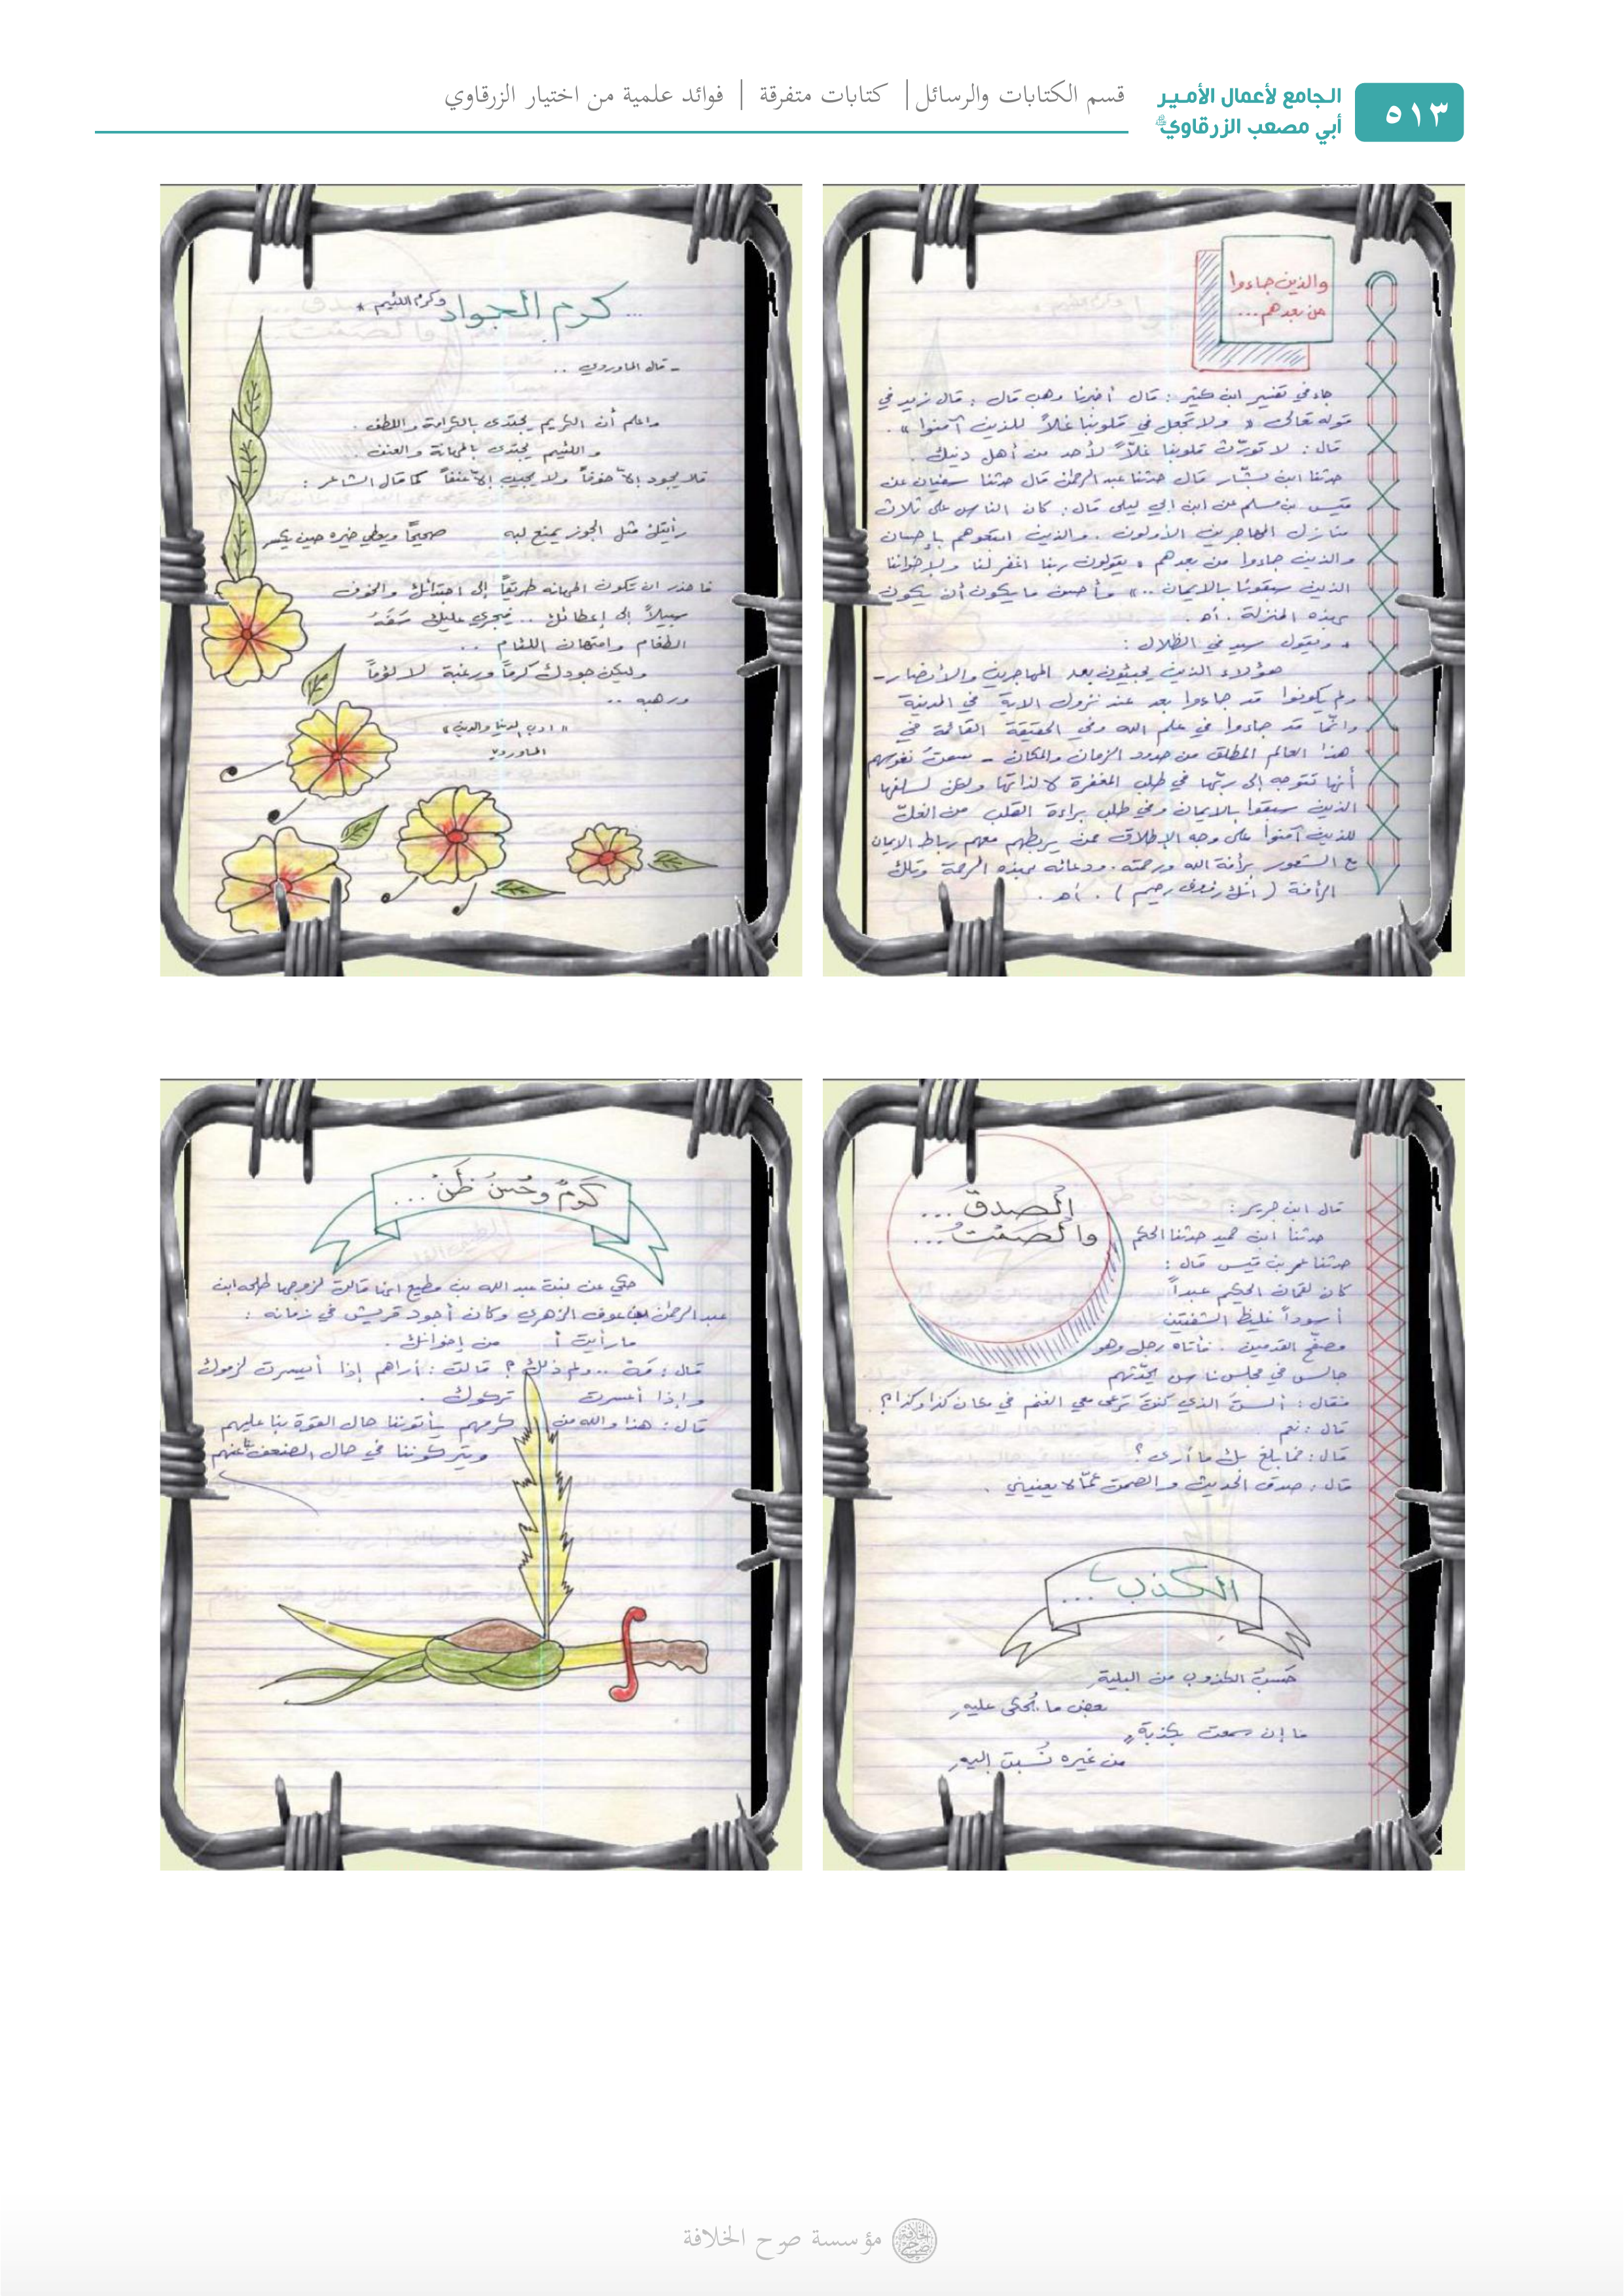 ٥١٣
الجامع لأعمال الأمير
أبي مصعب الزرقاوي
قسم الكتابات والرسائل | كتابات متفرقة | فوائد علمية من اختيار الزرقاوي
والذين جاءوا
من بعدهم ...
جاء في تفسير ابن كثير : قال أخبرنا وهب قال : قال زيد في
قوله تعالى « ولا تجعل في قلوبنا غلاً للذين آمنوا » .
قال : لا تورّث قلوبنا غلاً لأحد من أهل دينك .
حدثنا ابن بشّار قال حدثنا عبد الرحمن قال حدثنا سفيان عن
قيس بن مسلم عن ابن ابي ليلى قال : كان الناس على ثلاث
منازل المهاجرين الأولون . والذين اتبعوهم بإحسان
والذين جاءوا من بعدهم « يقولون ربنا اغفر لنا ولإخواننا
الذين سبقونا بالايمان .. » وأحسن ما يكون أن يكون
بهذه المنزلة . أهـ .
ويقول سيد في الظلال :
هؤلاء الذين يجيئون بعد المهاجرين والأنصار -
ولم يكونوا قد جاءوا بعد عند نزول الاية في المدينة
وانّما قد جاءوا في علم الله وفي الحقيقة القائمة في
هذا العالم المطلق من حدود الزمان والمكان - سمت نفوسهم
أنها تتوجه إلى ربّها في طلب المغفرة لا لذاتها ولكن لسلفها
الذين سبقوا بالايمان وفي طلب براءة القلب من الغلّ
للذين آمنوا على وجه الإطلاق ممن يربطهم معهم رباط الايمان
مع الشعور برأفة الله ورحمته . ودعائه بهذه الرحمة وتلك
الرأفة ( انك رءوف رحيم ) . أهـ .
... كرم الجواد وكرم اللئيم *
- قال الماوردي ..
واعلم أن الكريم يجتدى بالكرامة واللطف .
و اللئيم يجتدى بالمهانة والعنف .
فلا يجود إلاّ خوفاً ولا يجيب إلاّ عنفاً كما قال الشاعر :
رأيتك مثل الجوز يمنع لبه صحيحًا ويعطي خيره حين يكسر
فاحذر ان تكون المهانه طريقاً إلى اجتدائك والخوف
سبيلاً إلى إعطائك .. فيجري عليك سَفَهُ
الطغام وامتهان اللئام ..
وليكن جودك كرماً ورغبة لا لؤماً
ورهبه ..
« ادب الدنيا والدين »
الماوردي
الصدق ...
والصمت ...
قال ابن جرير :
حدثنا ابن حميد حدثنا الحكم
حدثنا عمر بن قيس قال :
كان لقمان الحكيم عبداً
أسوداً غليظ الشفتين
مصفّح القدمين . فأتاه رجل وهو
جالس في مجلس ناس يحدّثهم
فقال : ألستَ الذي كنتَ ترعى معي الغنم في مكان كذا وكذا ؟
قال : نعم
قال : فما بلغ بك ما أرى ؟
قال : صدق الحديث والصمت عمّا لا يعنيني .
الكذب ...
حَسبُ الكذوب من البليةِ
بعض ما يُحكى عليهِ
ما إن سمعت بكذبةٍ
من غيره نُسبت إليهِ
كَرمٌ وحُسنُ ظَن ...
حكي عن بنت عبد الله بن مطيع انها قالت لزوجها طلحه ابن
عبد الرحمن بن عوف الزهري وكان أجود قريش في زمانه :
ما رأيت من إخوانك .
قال : مَهْ .. ولم ذلك ؟ قالت : أراهم إذا أيسرت لزموك
وإذا أعسرت تركوك .
قال : هذا والله من كرمهم يأتوننا حال القوة بنا عليهم
ويتركوننا في حال الضعف عنهم
مؤسسة صرح الخلافة